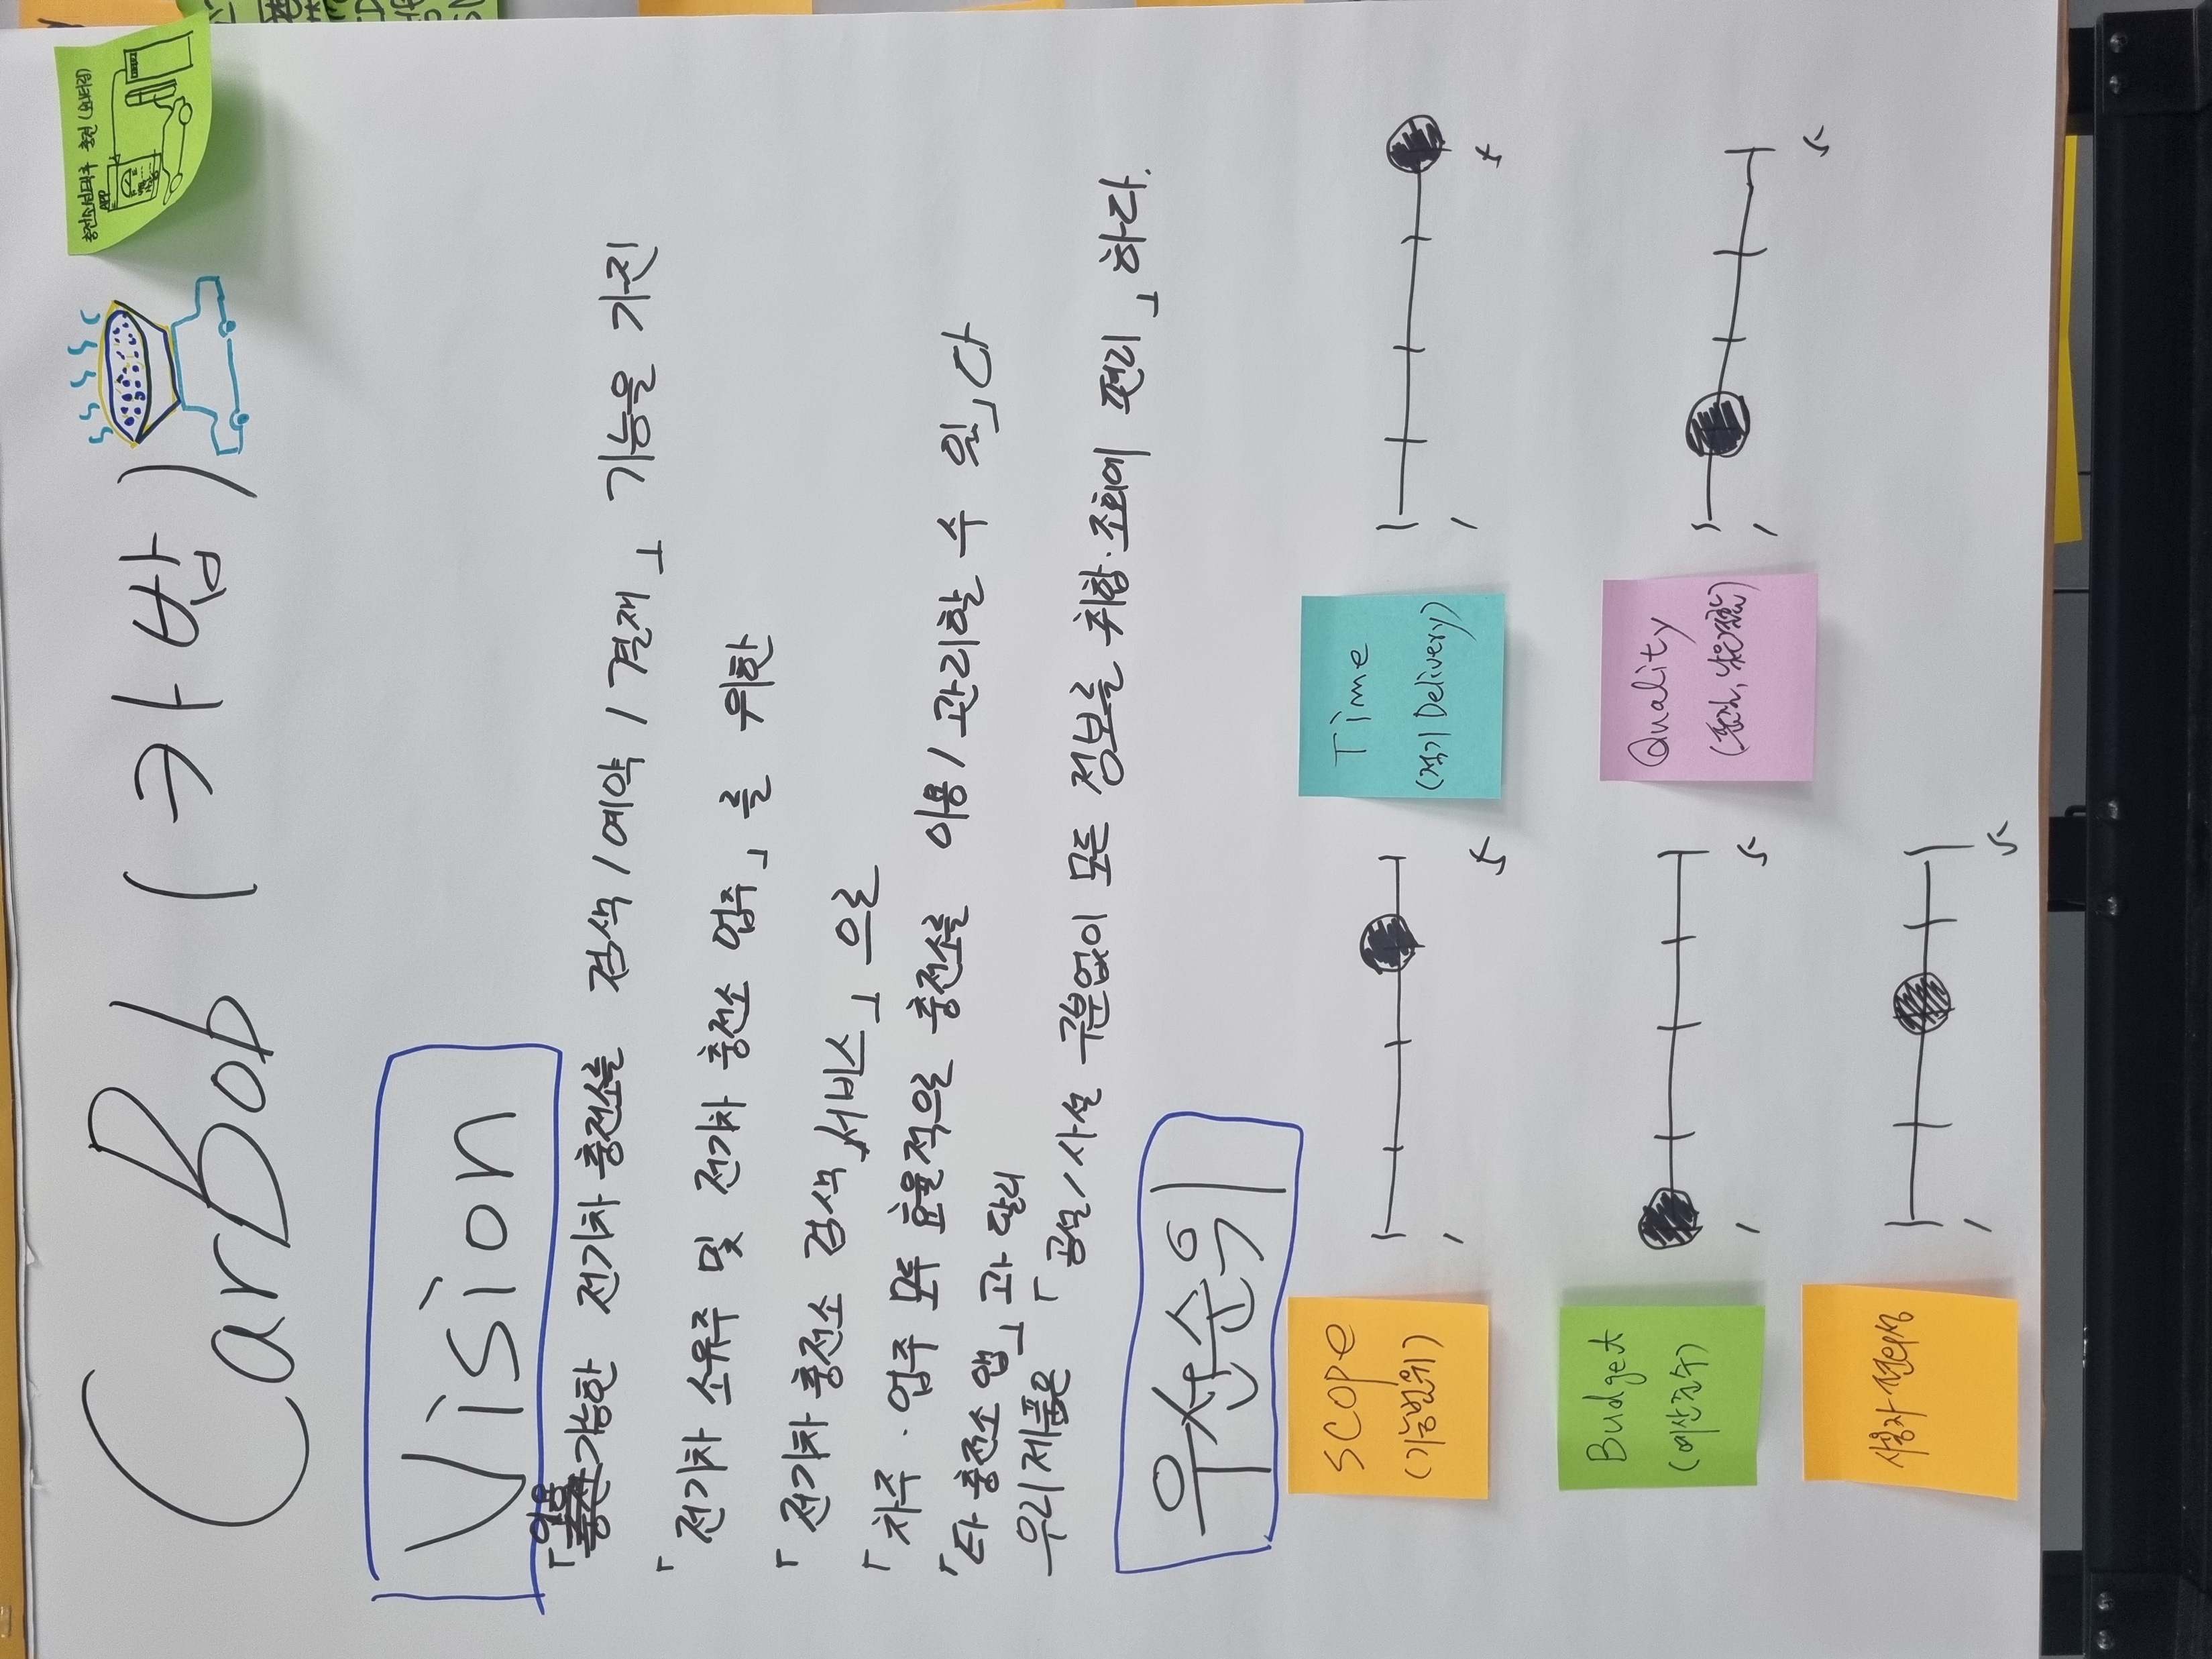 CarBob (카밥)
충전소 선택 후 충전
APP
Vision
이용
「가능한 전기차 충전소를 검색/예약/결재」 기능을 가진
「전기차 소유주 및 전기차 충전소 업주」를 위한
「전기차 충전소 검색 서비스」으로
「차주·업주 모두 효율적으로 충전소를 이용/관리할 수 있」다
「타 충전소 앱」과 달리
우리 제품은 「공설/사설 구분없이 모든 정보를 취합·조회에 편리」하다.
우선순위
SCOPE
(기능범위)
1
5
Time
(적기 Delivery)
1
5
Budget
(예산준수)
1
5
Quality
(품질, 낮은결함)
1
5
사용자 편의성
1
5